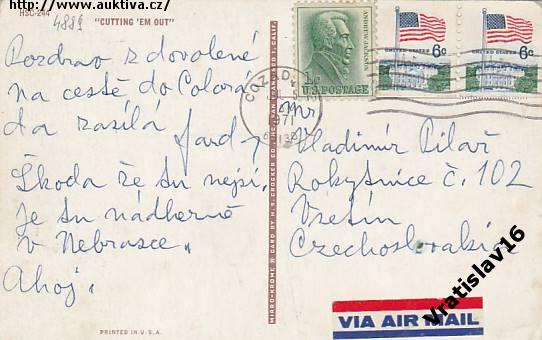 http://www.auktiva.cz/
HSC-244
4889
"CUTTING 'EM OUT"
Pozdrav z dovolené
na cestě do Colora
da zasílá
Jarda
Škoda že tu nejsi.
Je tu nádherně
v Nebrasce.
Ahoj.
PRINTED IN U.S.A.
MIRRO-KROME ® CARD BY H. S. CROCKER CO., INC., SAN FRANCISCO 1, CALIF.
ANDREW JACKSON
1c
U.S. POSTAGE
UNITED STATES 6c
UNITED STATES 6c
COZAD
1971
Mr
Vladimír Pilař
Rokytnice č. 102
Vsetín
Czechoslovakia
Vratislav16
VIA AIR MAIL